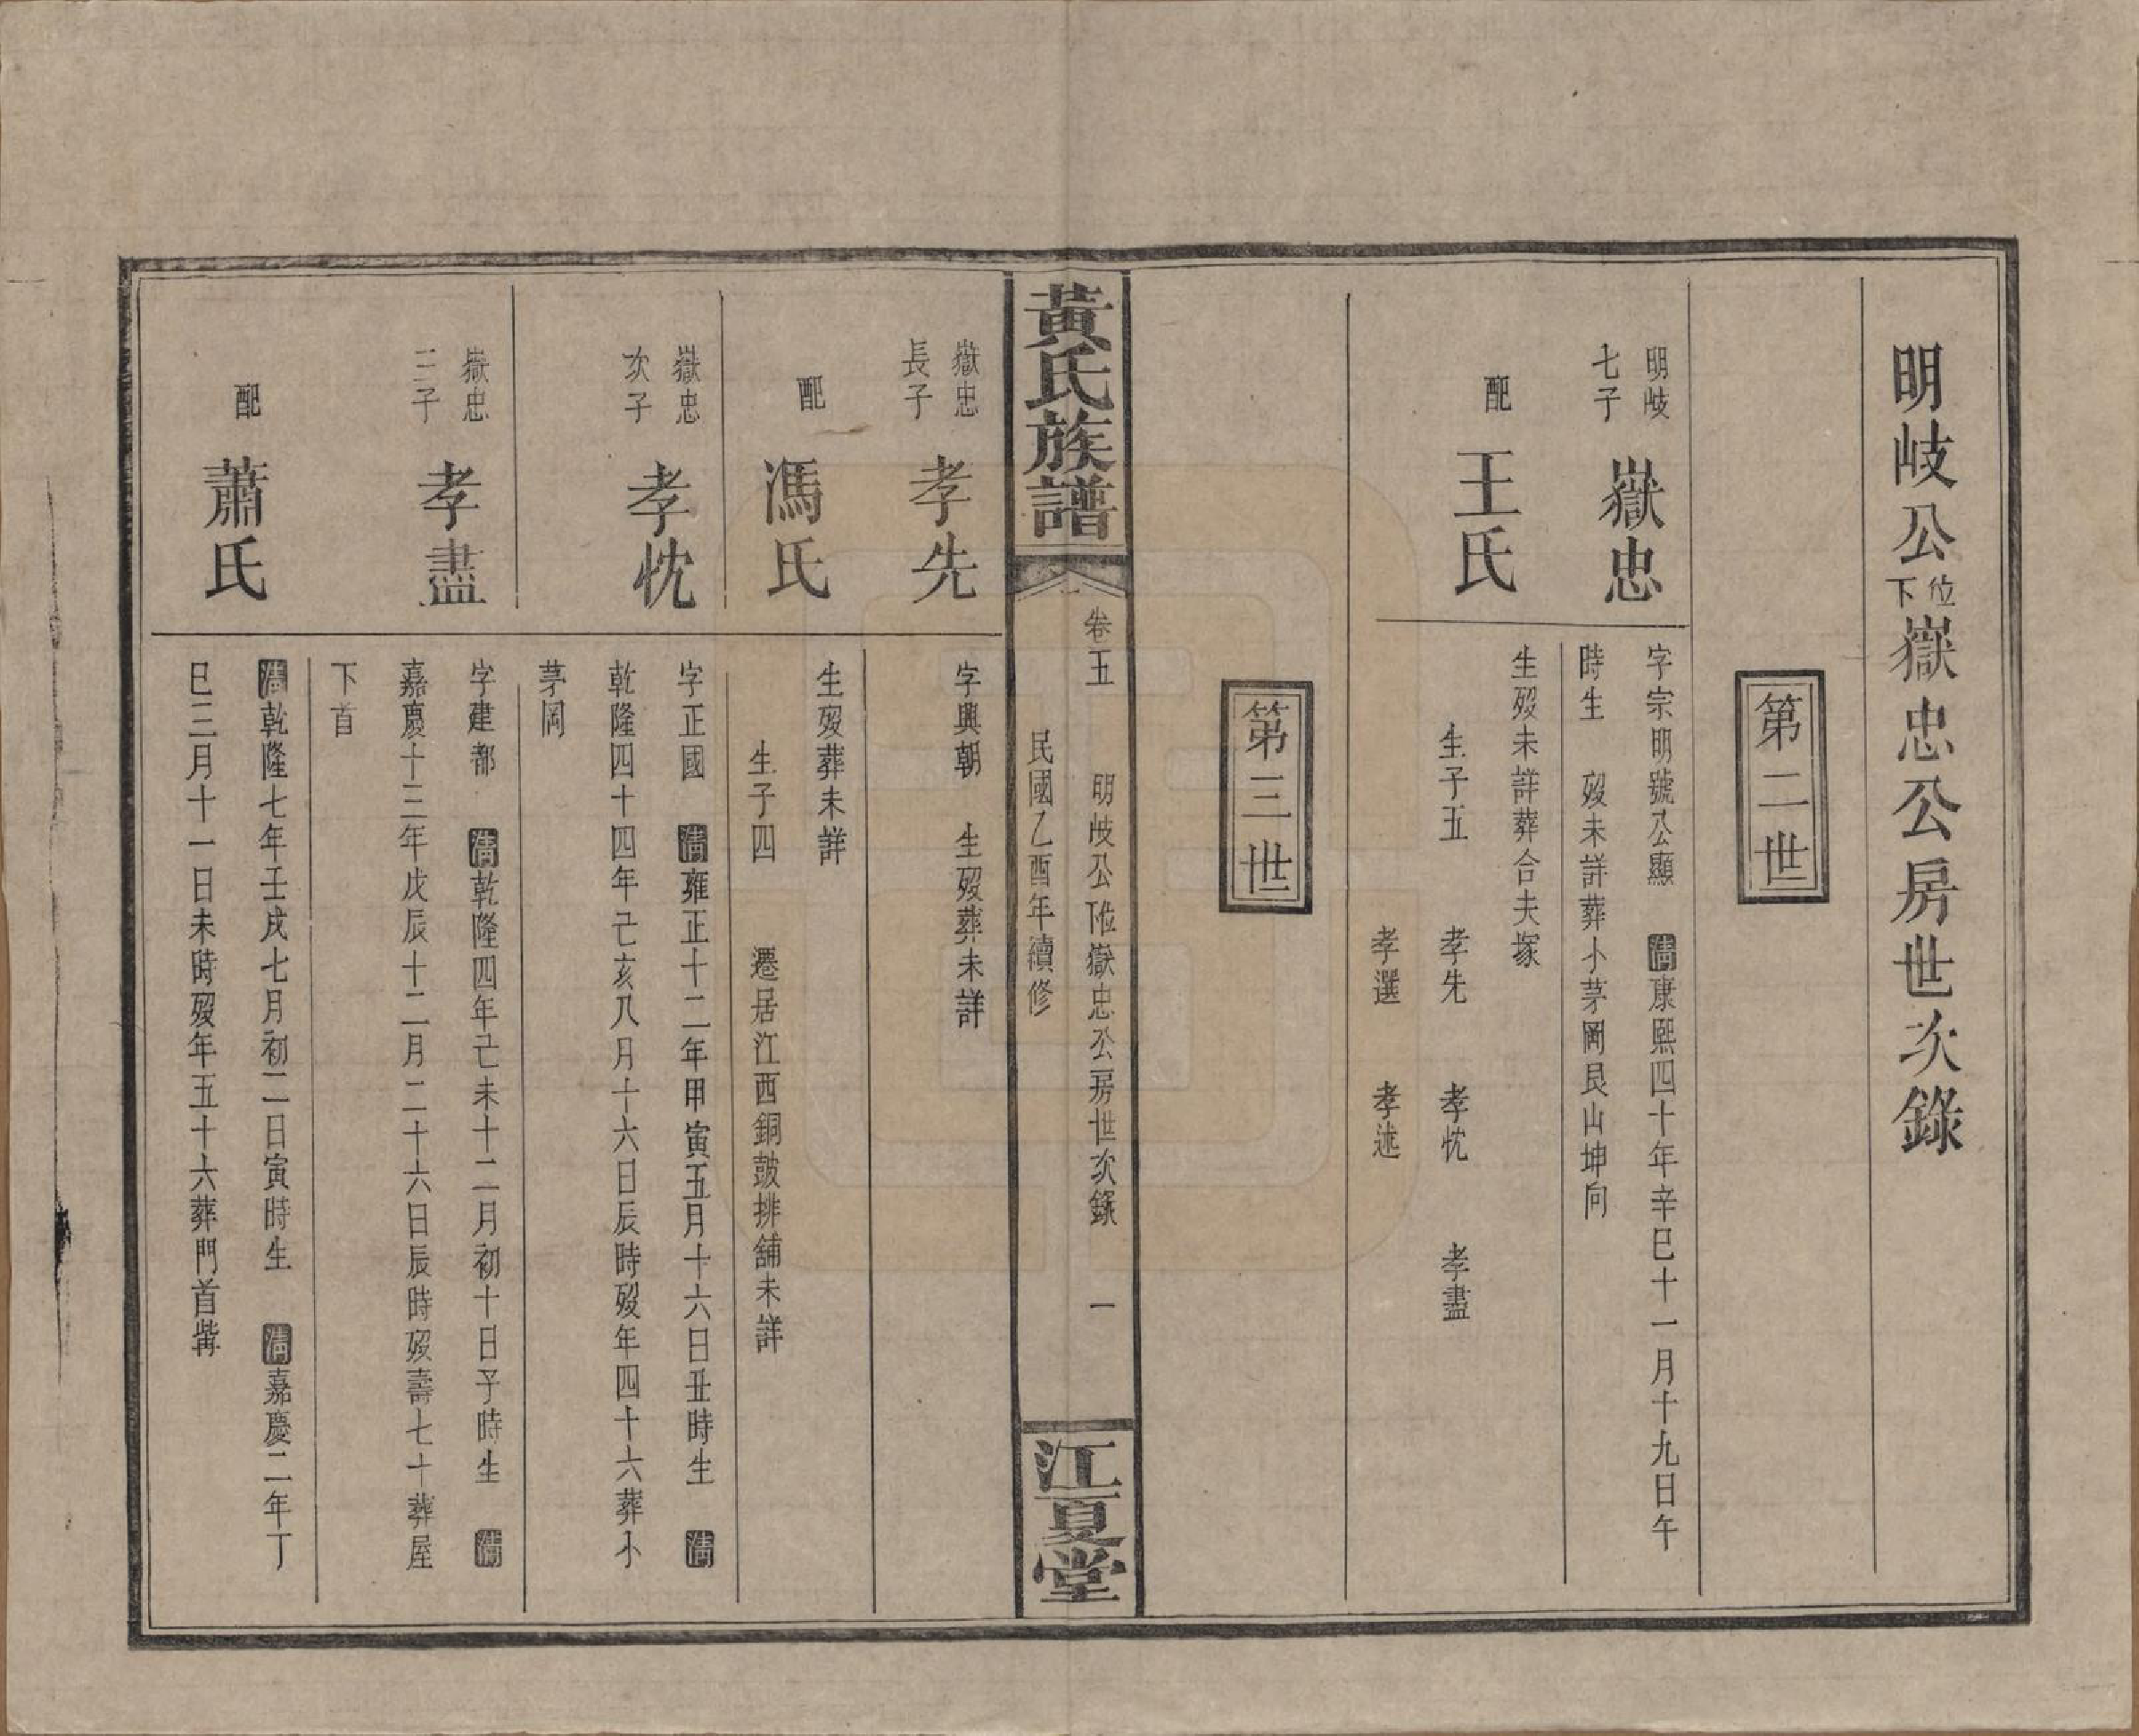 明岐公位下嶽忠公房世次錄
第二世
明岐
七子
嶽忠
字宗明號公顯 清康熙四十年辛巳十一月十九日午
時生 歿未詳葬小茅岡艮山坤向
配
王氏
生歿未詳葬合夫塚
生子五 孝先 孝忱 孝盡
孝選 孝述
第三世
黃氏族譜
卷五 明岐公位下嶽忠公房世次錄 一
民國乙酉年續修
江夏堂
嶽忠
長子
孝先
字興朝 生歿葬未詳
配
馮氏
生歿葬未詳
生子四 遷居江西銅鼓排舖未詳
嶽忠
次子
孝忱
字正國 清雍正十二年甲寅五月十六日丑時生 清
乾隆四十四年己亥八月十六日辰時歿年四十六葬小
茅岡
嶽忠
三子
孝盡
字建都 清乾隆四年己未十二月初十日子時生 清
嘉慶十三年戊辰十二月二十六日辰時歿壽七十葬屋
下首
配
蕭氏
清乾隆七年壬戌七月初二日寅時生 清嘉慶二年丁
巳三月十一日未時歿年五十六葬門首嘴